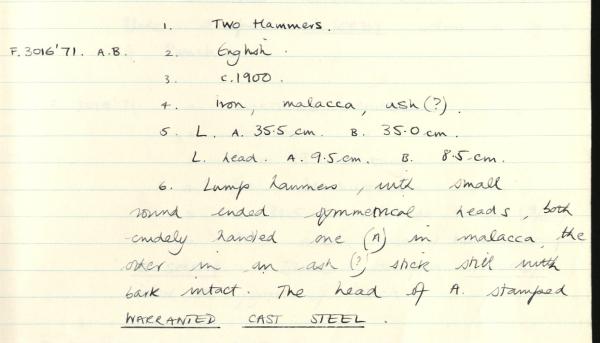 1. Two Hammers.
F.3016'71. A.B. 2. English.
3. c.1900.
4. iron, malacca, ash (?).
5. L. A. 35.5 cm. B. 35.0 cm.
L. head. A. 9.5 cm. B. 8.5 cm.
6. Lump hammers, with small
round ended symmetrical heads, both
crudely handled one (A) in malacca, the
other in an ash (?) stick still with
bark intact. The head of A. stamped
WARRANTED CAST STEEL.